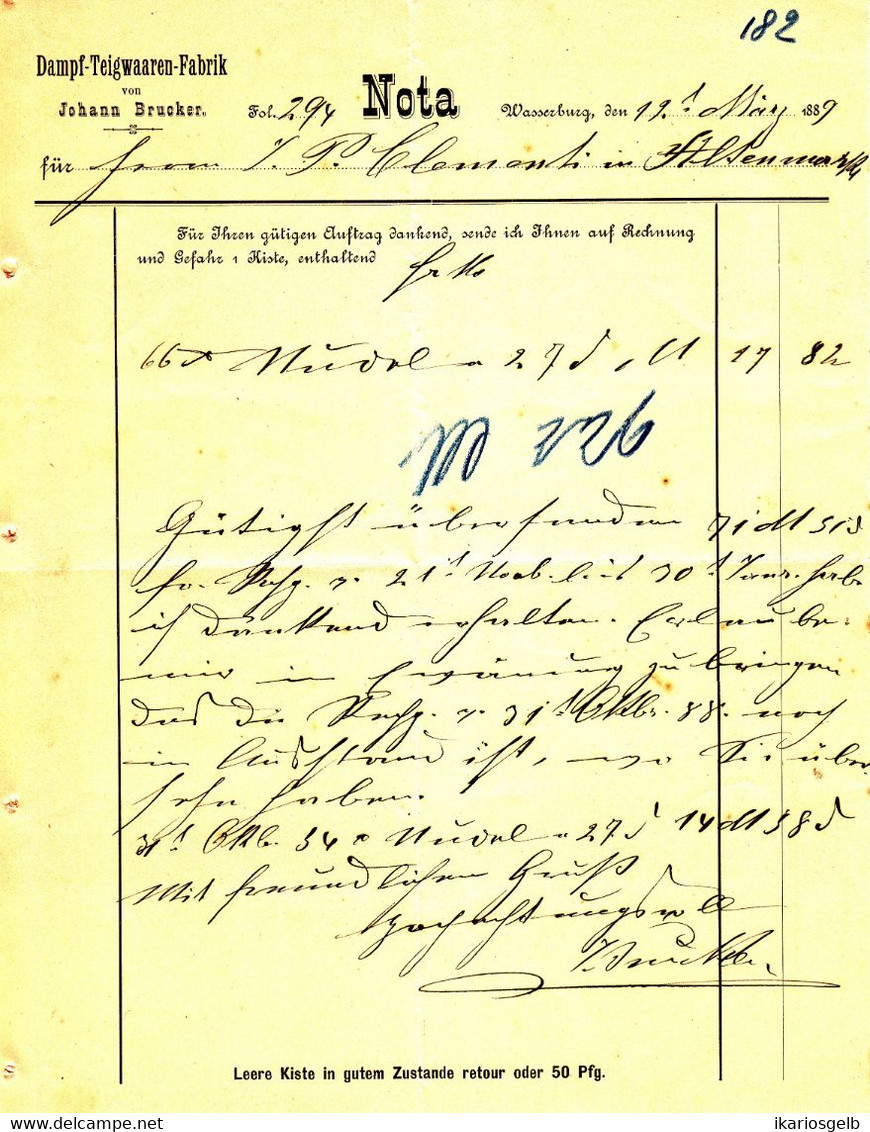 182
Dampf-Teigwaaren-Fabrik
von
Johann Brucker.
Fol. 294 Nota Wasserburg, den 12t März 1889
für Herrn J. P. Clementi in Altenmarkt
Für Ihren gütigen Auftrag dankend, sende ich Ihnen auf Rechnung
und Gefahr 1 Kiste, enthaltend
66 ℔ Nudel a 27 ₰ M 17 82
Gütigst übersandten 71 M 51 ₰
fr. Rchg. v. 21t Novb. bis 30t Janr. habe
ich dankend erhalten. Erlaube
mir in Erwänung zu bringen
das die Rechg. v. 31t Oktbr. 88. noch
in Ausstand ist, wo Sie über
sehn haben.
31t Oktb. 54 ℔ Nudel a 27 ₰ 14 M 58 ₰
Mit freundlichen Gruß
hochachtungsvoll
J. Brucker
Leere Kiste in gutem Zustande retour oder 50 Pfg.
ikariosgelb